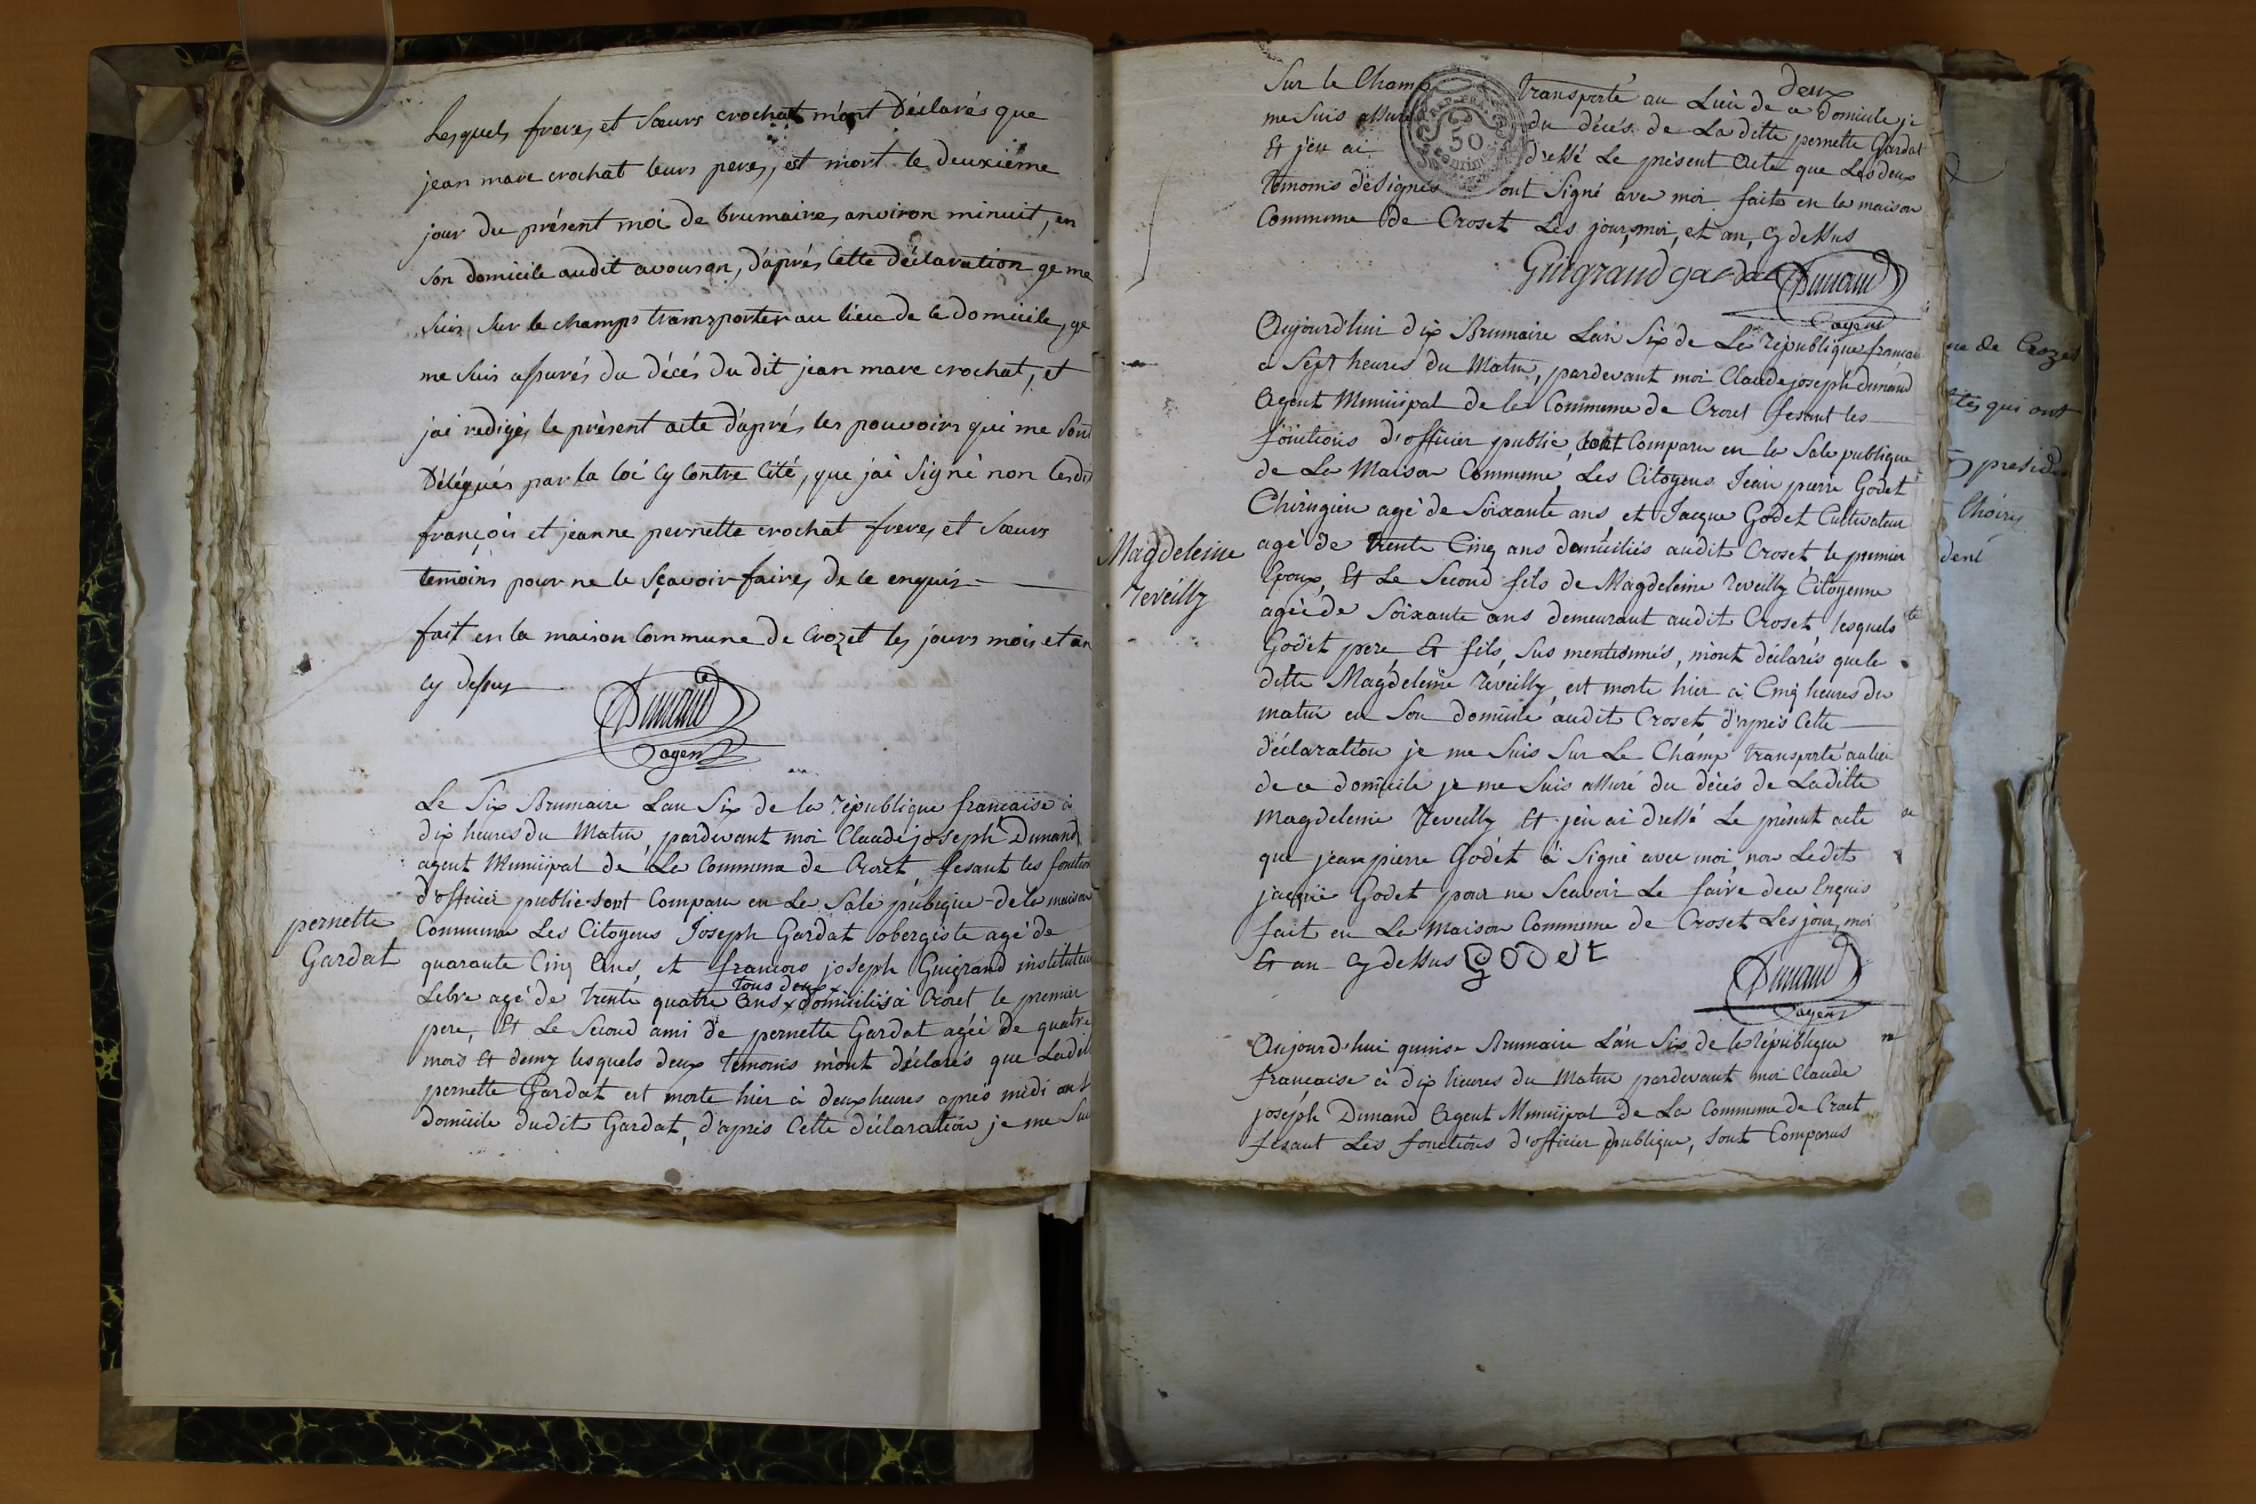 Lesquels freres et Sœurs crochat m'ont Déclarés que
jean marc crochat leurs peres, est mort le Deuxième
jour du présent moi de brumaire, anviron minuit, en
son domicile audit avouson, d'après Cette déclaration ge me
suis, sur le champs transporter au lieu de ce domicile, ge
me suis assurés du décés du dit jean marc crochat, et
jai redigés le présent acte d'aprés les pouvoirs qui me sont
Délégués par la loi cy contre Cité, que jai Signé non lesdi
françois et jeanne pernette crochat freres et Sœurs
temoins pour ne le sçavoir faires de ce enquis
fait en la maison Commune de Crozet les jours mois et an
cy dessus
Dunand
agent
pernette
Gardat
Le Six Brumaire Lan Six de la république francaise à
dix heures du Matin, pardevant moi Claude joseph Dunand
agent Municipal de La Commune de Crozet, fesant les fonction
d'officier public sont Comparu en La Sale publique de la maison
Commune Les Citoyens Joseph Gardat obergiste agé de
quarante Cinq ans, et francois joseph Guigrand instituteur
Lebre agé de trente quatre ans x domiciliés à Crozet le premier
tous deux x
pere, Et Le Second ami de pernette Gardat agéé de quatre
mois et demy lesquels deux temoins m'ont déclarés que Ladite
pernette Gardat est morte hier à deux heures après midi au
domicile dudit Gardat, d'après Cette déclaration je me Suis
deux
Sur le Champ transporté au Lieu de ce domicile je
me Suis assuré du décés de La ditte pernette Gardat
Et j'en ai dressé Le présent Acte que Les deux
temoins designés ont Signé avec moi fait en la maison
Commune de Croset Les jour, moi, et an, cy dessus
50
Guigrand gardat Dunand
agent
Magdeleine
reveilly
Aujourd'hui dix Brumaire Lan Six de La république francaise
a Sept heures du Matin, pardevant moi Claude joseph dunand
Agent Municipal de la Commune de Crozet fesant les
fonctions d'officier public, sont Comparu en la Sale publique
de La Maison Commune, Les Citoyens Jean pierre Godet
Chirugien agé de Soixante ans, et Jacque Godet Cultivateur
agé de trente Cinq ans domiciliés audit Croset, le premier
Epoux, Et Le Second fils de Magdeleine reveilly Citoyenne
agéé de Soixante ans demeurant audit Croset, lesquels
Godet pere Et fils, Sus mentionnés, m'ont déclarés que la
ditte Magdeleine reveilly, est morte hier à Cinq heures du
matin en Son domicile audit Croset d'après Cette
déclaration je me Suis Sur Le Champ transporté au lieu
de ce domicile je me Suis assuré du décés de Laditte
Magdeleine reveilly Et j'en ai dressé Le présent acte
que jean pierre Godet à Signé avec moi, non Ledit
jacque Godet pour ne Scavoir Le faire de ce Enquis
fait en La Maison Commune de Croset Les jour, moi
Et an cy dessus Godet
Dunand
agent
Aujourd'hui quinse Brumaire L'an Six de la république
francaise à dix heures du Matin pardevant moi Claude
joseph Dunand Agent Municipal de La Commune de Crozet
fesant Les fonctions d'officier publique, sont Comparus
de Crozet
qui ont
presid